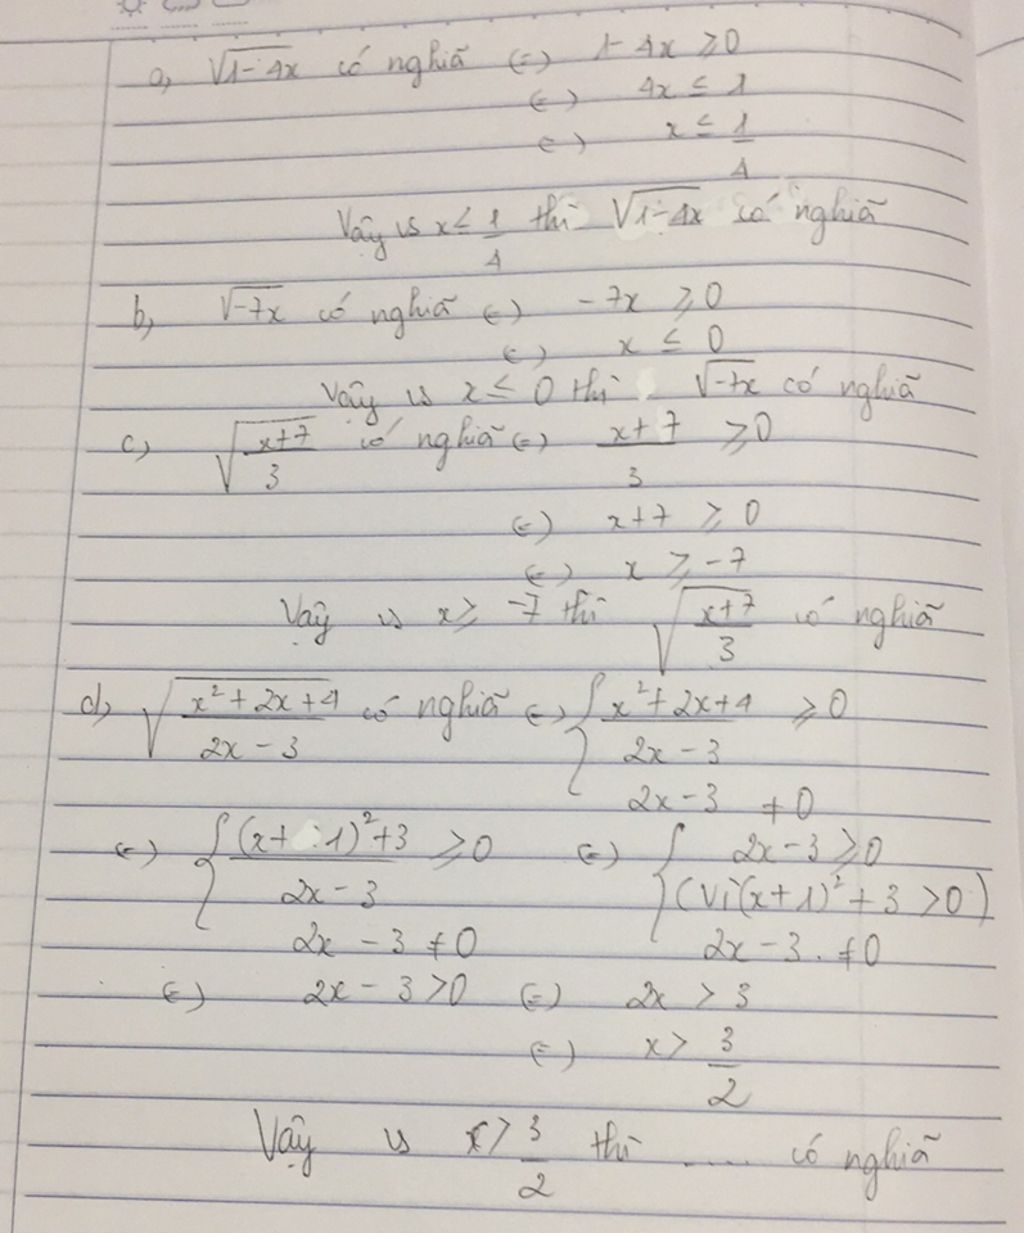 a, √1-4x có nghĩã (=) 1-4x ≥ 0
(=) 4x ≤ 1
(=) x ≤ 1/4
Vậy vs x ≤ 1/4 thì √1-4x có nghĩã
b, √-7x có nghĩã (=) -7x ≥ 0
(=) x ≤ 0
Vậy vs x ≤ 0 thì √-7x có nghĩã
c) √(x+7)/3 có nghĩã (=) (x+7)/3 ≥ 0
(=) x+7 ≥ 0
(=) x ≥ -7
Vậy vs x ≥ -7 thì √(x+7)/3 có nghĩã
d, √(x²+2x+4)/(2x-3) có nghĩã (=) { (x²+2x+4)/(2x-3) ≥ 0
2x-3 ≠ 0
(=) { ((x+1)²+3)/(2x-3) ≥ 0 (=) { 2x-3 ≥ 0
(Vì (x+1)²+3 > 0)
2x-3 ≠ 0 2x-3 ≠ 0
(=) 2x-3 > 0 (=) 2x > 3
(=) x > 3/2
Vậy vs x > 3/2 thì ..... có nghĩã